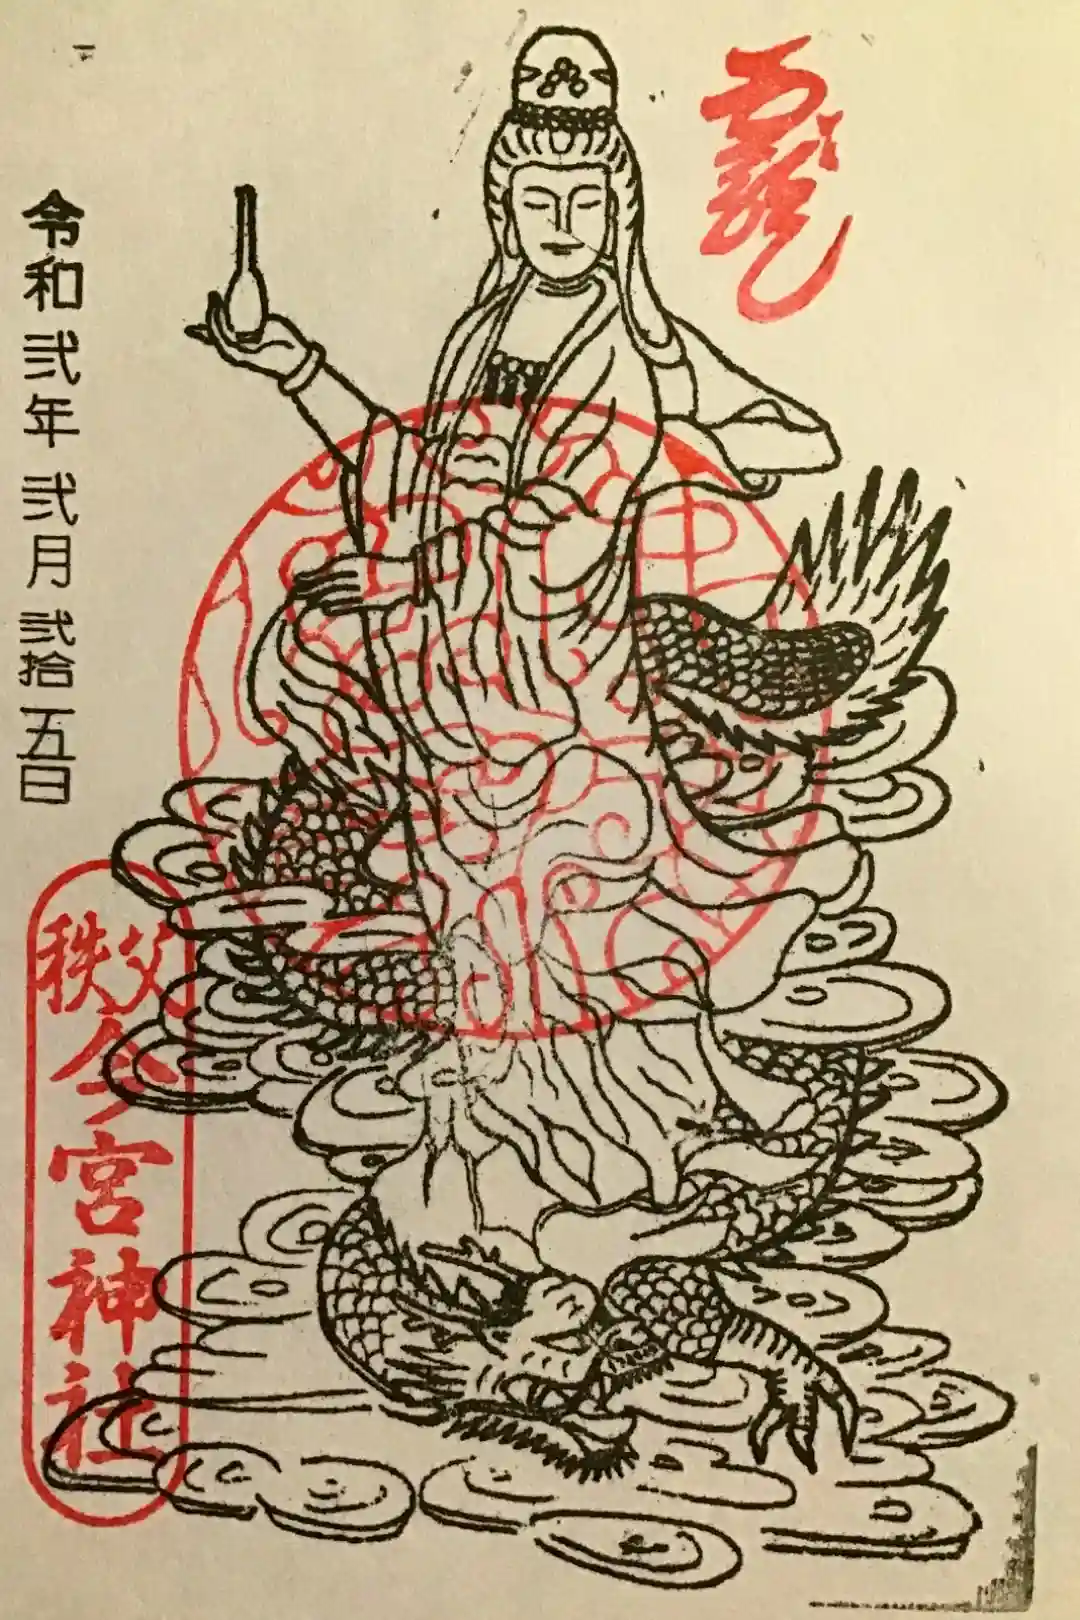 龍
令和弐年弐月弐拾五日
秩父
今宮神社